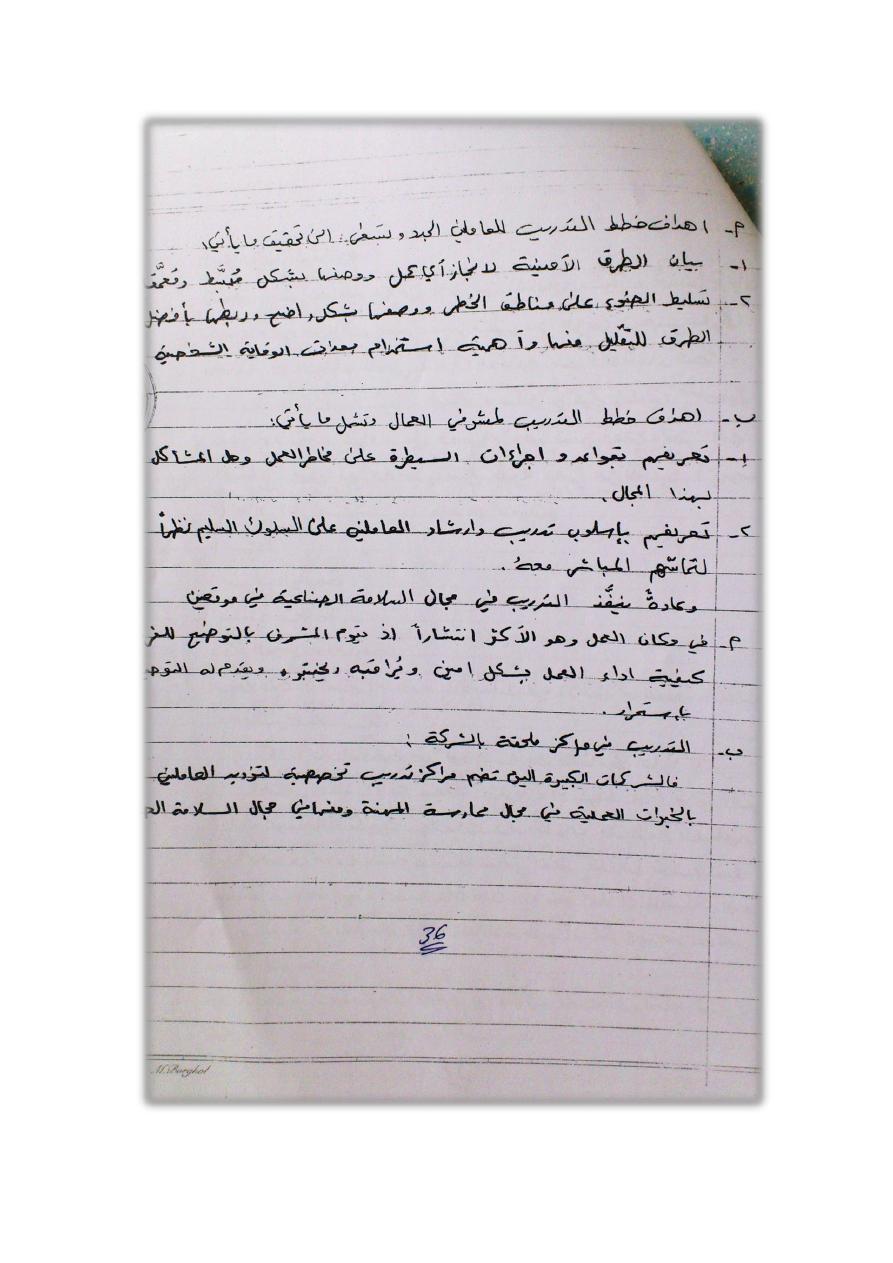 أ- اهداف خطط التدريب للعاملين الجدد وتسعى إلى تحقيق ما يأتي:
١- بيان الطرق الأمينة لانجاز أي عمل ووصفها بشكل مبسّط
٢- تسليط الضوء على مناطق الخطر ووصفها بشكل واضح وربطها بأفضل
الطرق للتقليل منها وأهمية استخدام معدات الوقاية الشخصية
ب- اهداف خطط التدريب لمشرفي العمال وتشمل ما يأتي:
١- تعريفهم بقواعد و اجراءات السيطرة على مخاطر العمل وحل المشاكل
بهذا المجال.
٢- تعريفهم بإسلوب تدريب وارشاد العاملين على السلوك السليم نظراً
لتماسّهم المباشر معهُ.
وعادةً يُنفَّذ التدريب في مجال السلامة الصناعية في موقعين
أ- في مكان العمل وهو الأكثر انتشاراً اذ يقوم المشرف بالتوضيح
كيفية اداء العمل بشكل امين ويُراقبه ويختبره ويقدم له
بإستمرار.
ب- التدريب في مراكز ملحقة بالشركة:
فالشركات الكبيرة التي تضم مراكز تدريب تخصصية لتزويد العاملين
بالخبرات العملية في مجال ممارسة المهنة ومنها في مجال السلامة
36
M.Barghol